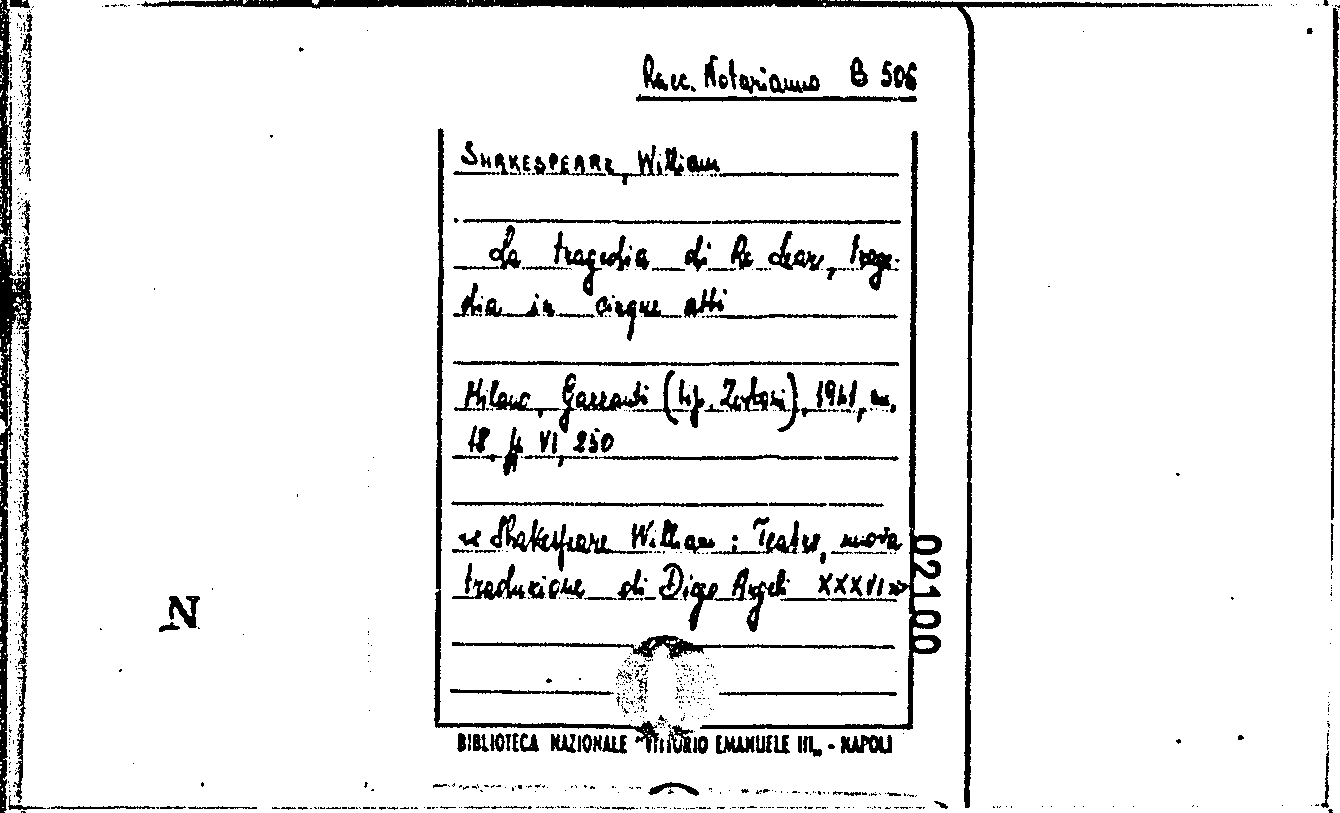 Racc. Notarianno B 506
SHAKESPEARE, William
La tragedia di Re Lear, trage-
dia in cinque atti
Milano, Garzanti (tip. Zerboni), 1941, in.
18. pp VI, 250
Shakespeare William : Teatro, nuova
traduzione di Diego Angeli XXXVI
02100
N
BIBLIOTECA NAZIONALE "VITTORIO EMANUELE III„ - NAPOLI